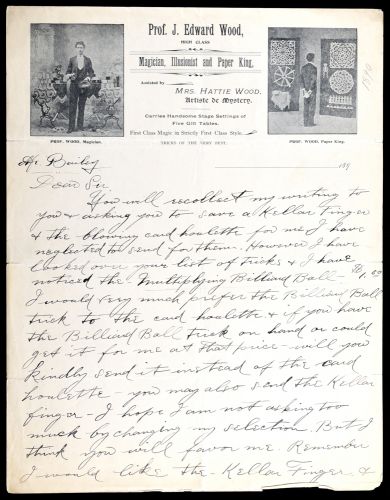 Prof. J. Edward Wood,
HIGH CLASS
Magician, Illusionist and Paper King,
Assisted by
MRS. HATTIE WOOD,
Artiste de Mystery.
Carries Handsome Stage Settings of
Five Gilt Tables.
First Class Magic in Strictly First-Class Style.
TRICKS OF THE VERY BEST.
PROF. WOOD, Magician.
PROF. WOOD, Paper King.
189
Mr Bailey
Dear Sir
You will recollect my writing to
you & asking you to save a Kellar Finger
& the blowing card houlette for me I have
neglected to send for them. However I have
looked over your list of tricks & I have
noticed the "Multiplying Billiard Ball $1,00
I would very much prefer the Billiard Ball
trick to the card houlette & if you have
the Billiard Ball trick on hand or could
get it for me at that price - will you
kindly send it instead of the card
houlette - you may also send the Kellar
finger - I hope I am not asking too
much by changing my selection. But I
think you will favor me. Remember
I would like the Kellar Finger &